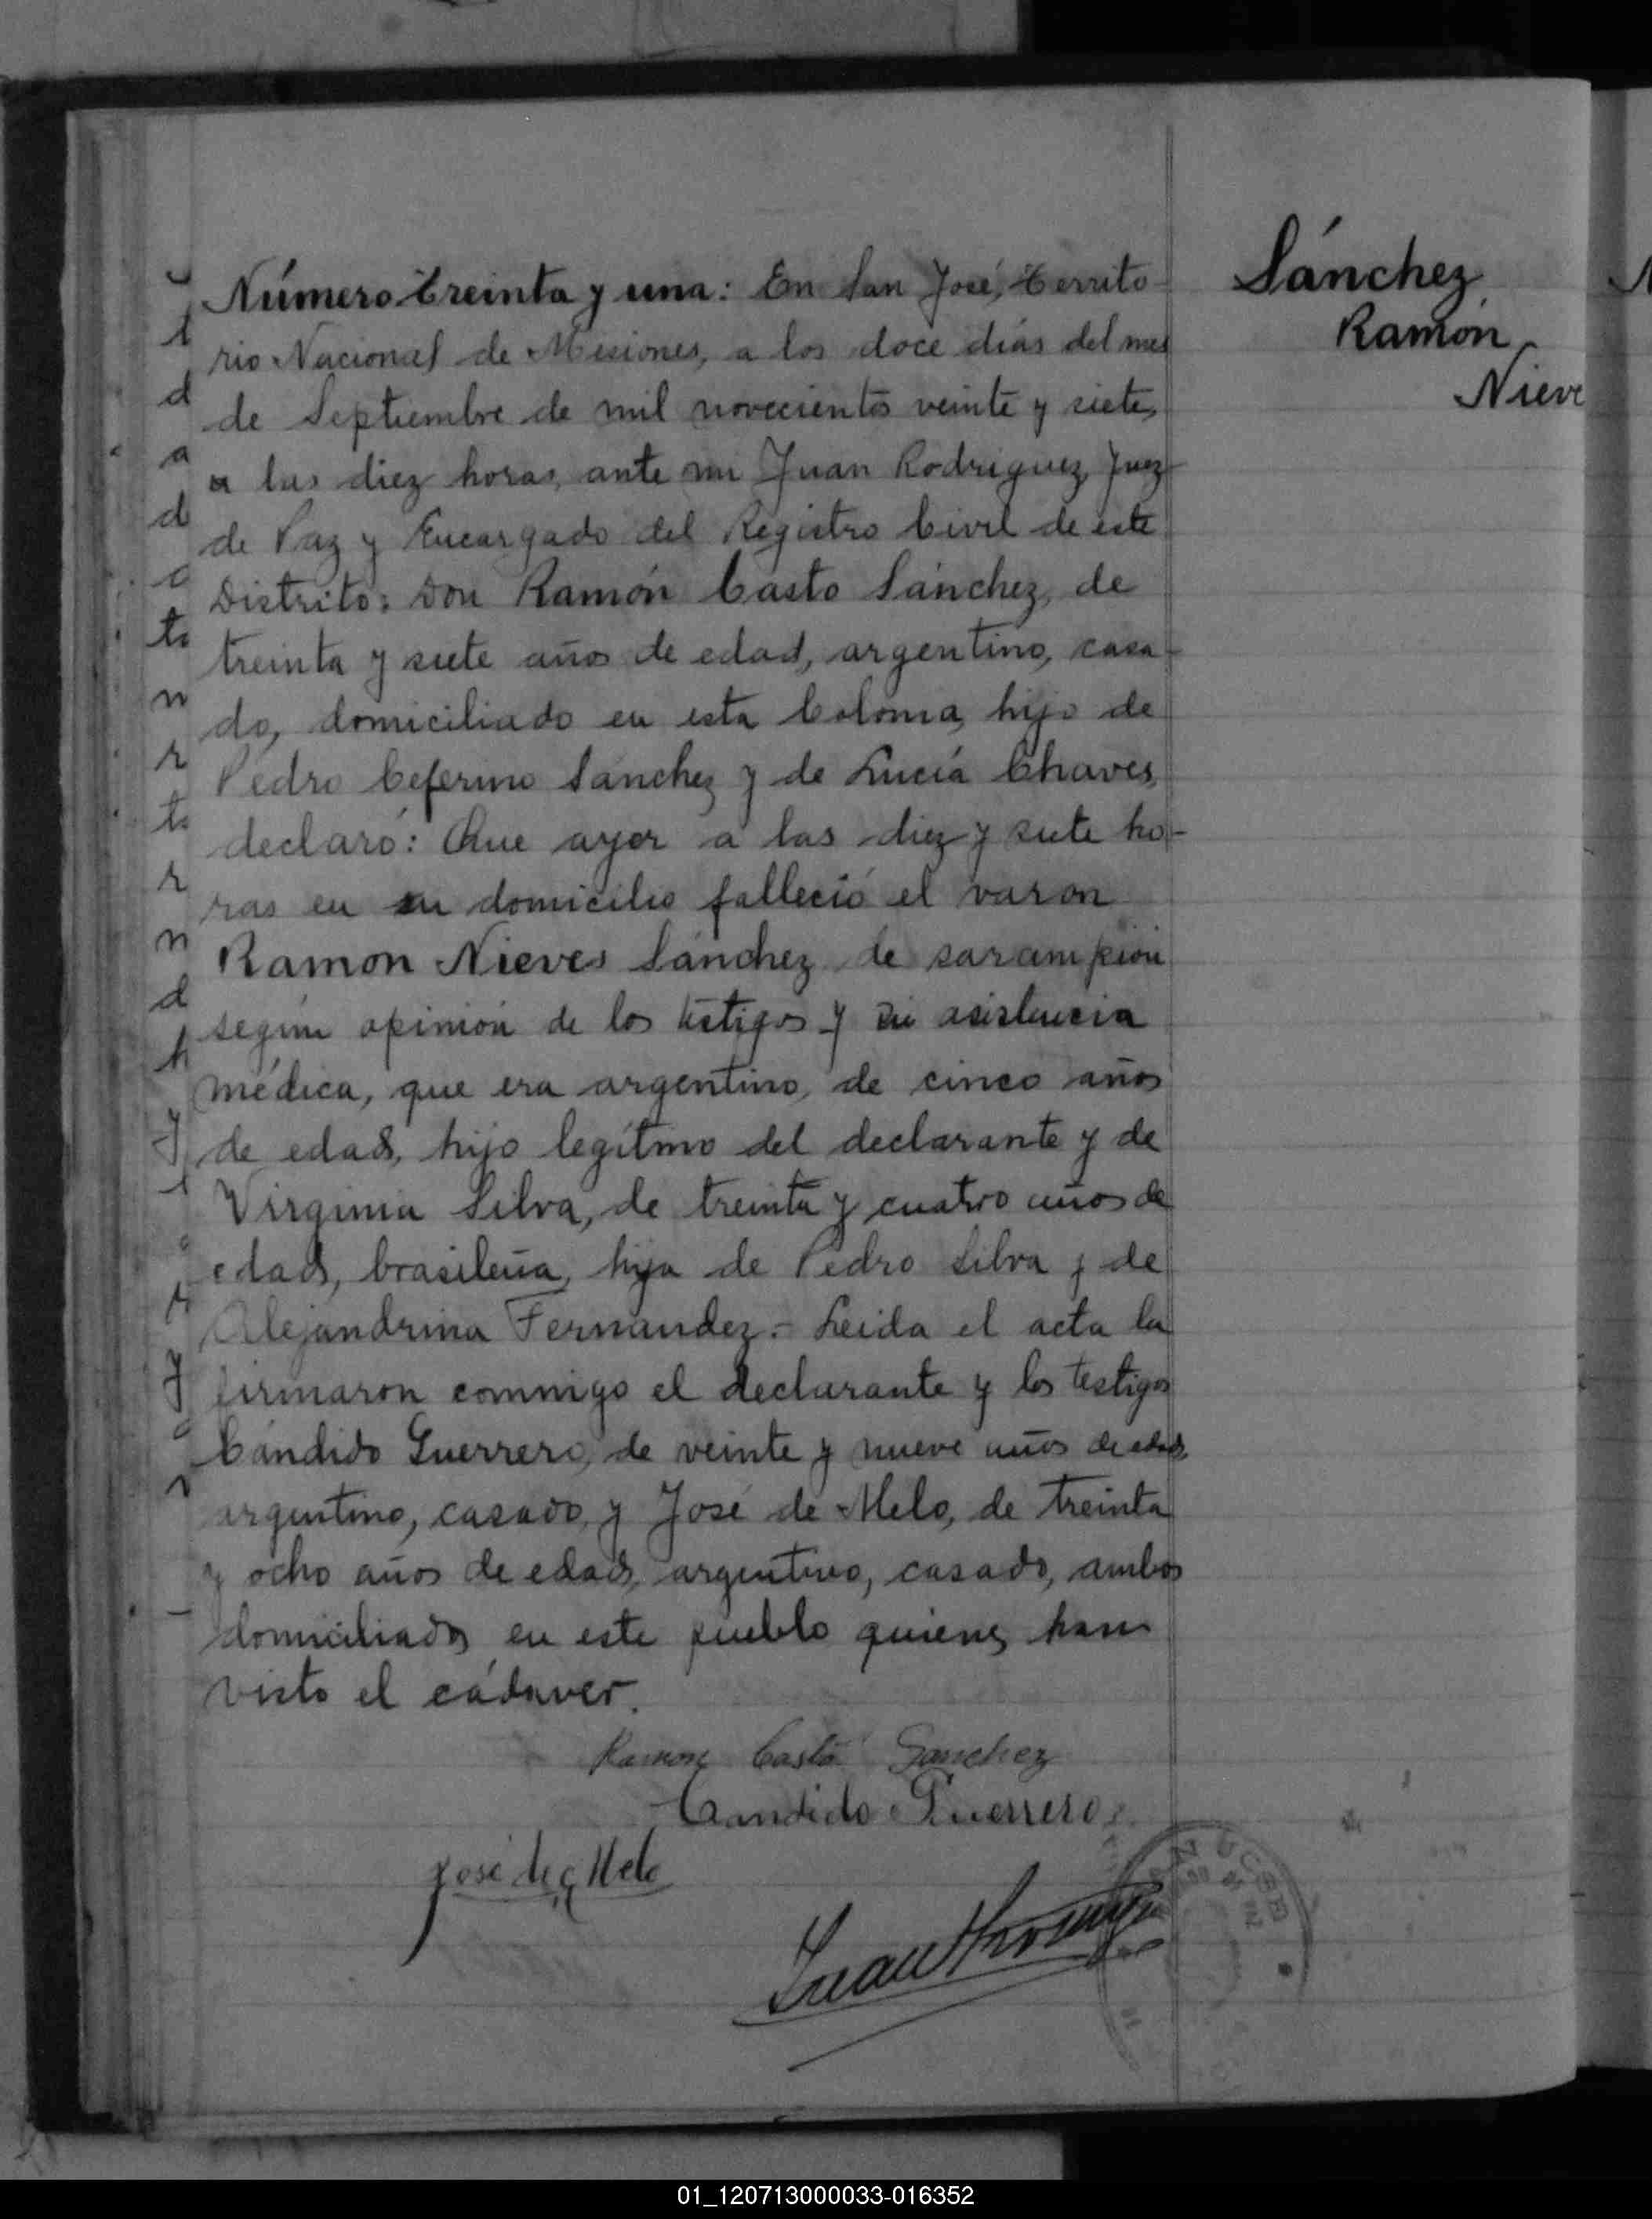 Número treinta y una: En San José, Territo-
rio Nacional de Misiones, a los doce días del mes
de Septiembre de mil novecientos veinte y siete,
a las diez horas, ante mi Juan Rodriguez, Juez
de Paz y Encargado del Registro Civil de este
Distrito: Don Ramón Casto Sánchez, de
treinta y siete años de edad, argentino, casa-
do, domiciliado en esta Colonia, hijo de
Pedro Ceferino Sánchez y de Lucía Chaves,
declaró: Que ayer a las diez y siete ho-
ras en su domicilio falleció el varon
Ramon Nieves Sánchez de sarampión
según opinión de los testigos y sin asistencia
médica, que era argentino, de cinco años
de edad, hijo legítimo del declarante y de
Virginia Silva, de treinta y cuatro años de
edad, brasileña, hija de Pedro Silva y de
Alejandrina Fernandez.- Leida el acta la
firmaron conmigo el declarante y los testigos
Cándido Guerrero, de veinte y nueve años de edad,
argentino, casado, y José de Melo, de treinta
y ocho años de edad, argentino, casado, ambos
domiciliados en este pueblo quienes han
visto el cádaver.
Ramon Casto Sanchez
Candido Guerrero
José de Melo
Sánchez
Ramón
Nieve
01_120713000033-016352